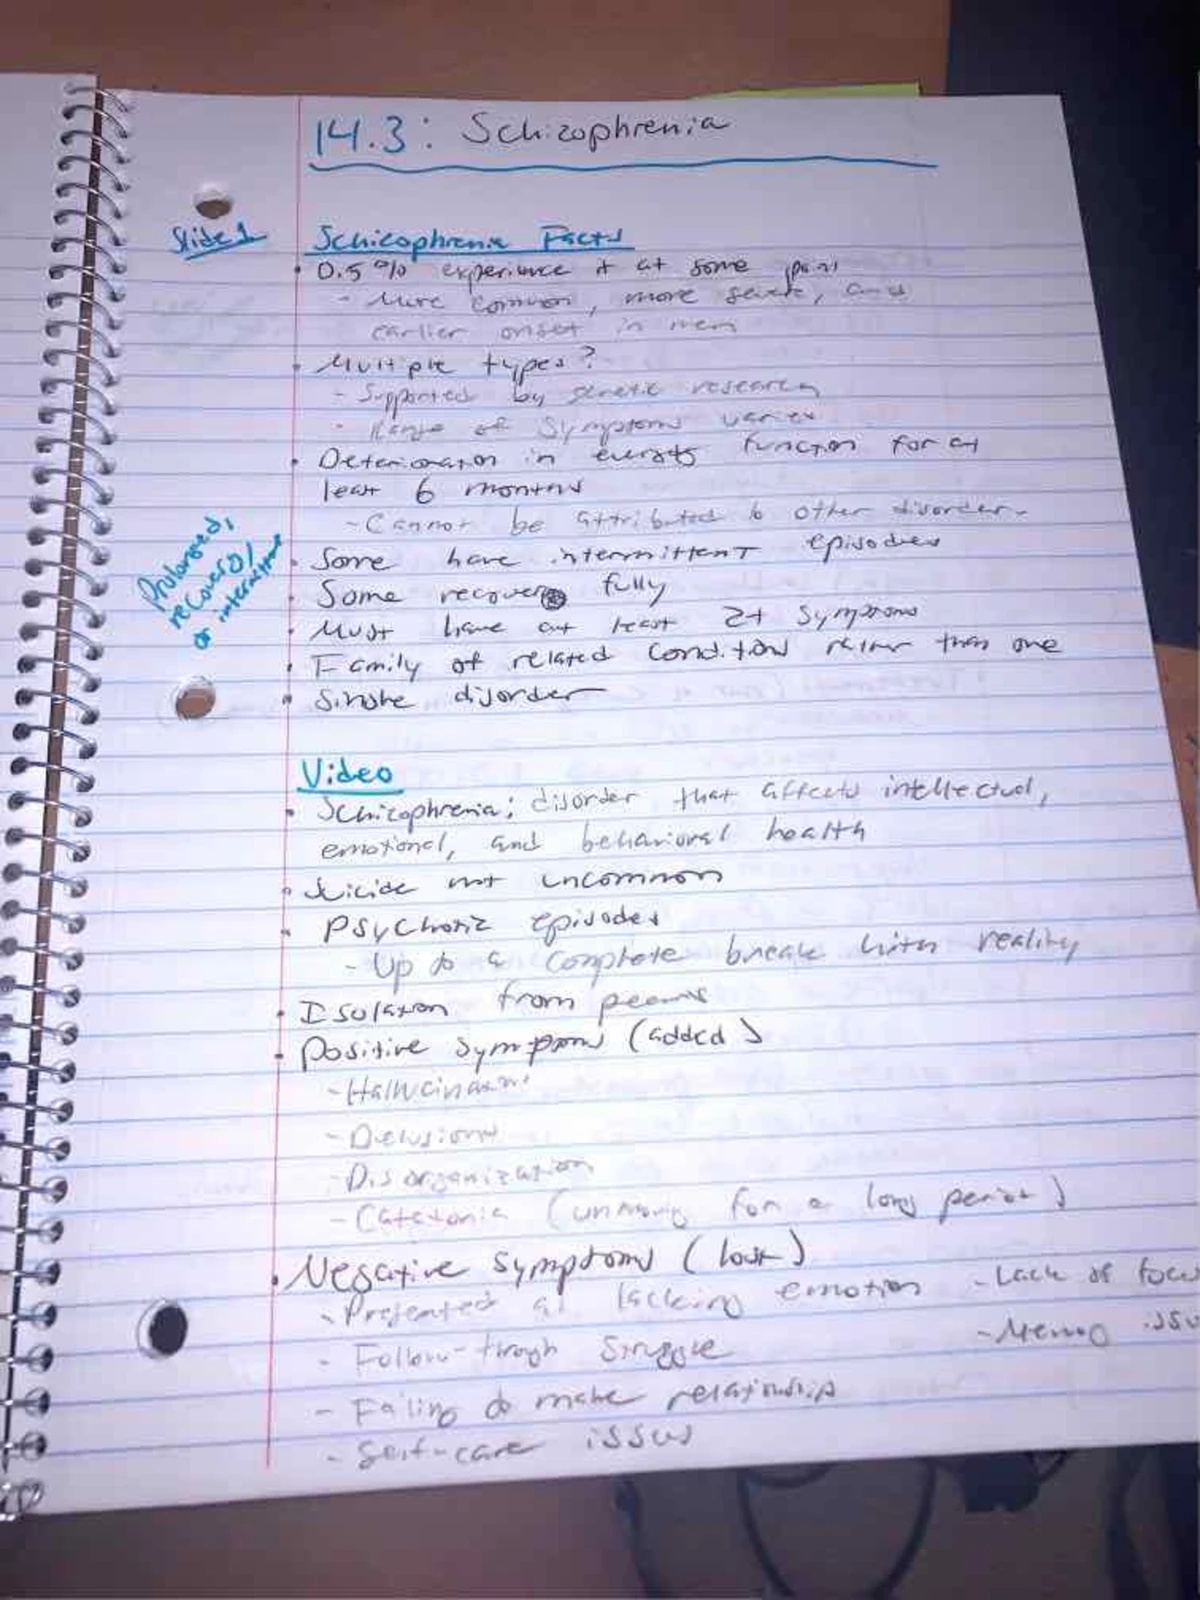 14.3: Schizophrenia
Slide 1
Schizophrenia Facts
• 0.5% experience it at some point
- More common, more severe, and
earlier onset in men
• Multiple types?
- Supported by genetic research
- Range of symptoms varies
• Deterioration in everyday function for at
least 6 months
- Cannot be attributed to other disorder.
Prolonged,
recovery/
or intermittent
• Some have intermittent episodes
• Some recover fully
• Must have at least 2+ symptoms
• Family of related conditions rather than one
• Single disorder
Video
• Schizophrenia; disorder that affects intellectual,
emotional, and behavioral health
• Suicide not uncommon
• Psychotic episodes
- Up to a complete break with reality
• Isolation from
• Positive symptoms (added)
- Hallucinations
- Delusions
- Disorganization
- Catatonia (unmoving for a long period)
• Negative symptoms (lost)
- Presented as lacking emotion - Lack of focu
- Follow-through struggle - Memory issu
- Failing to make relationship
- Self-care issues